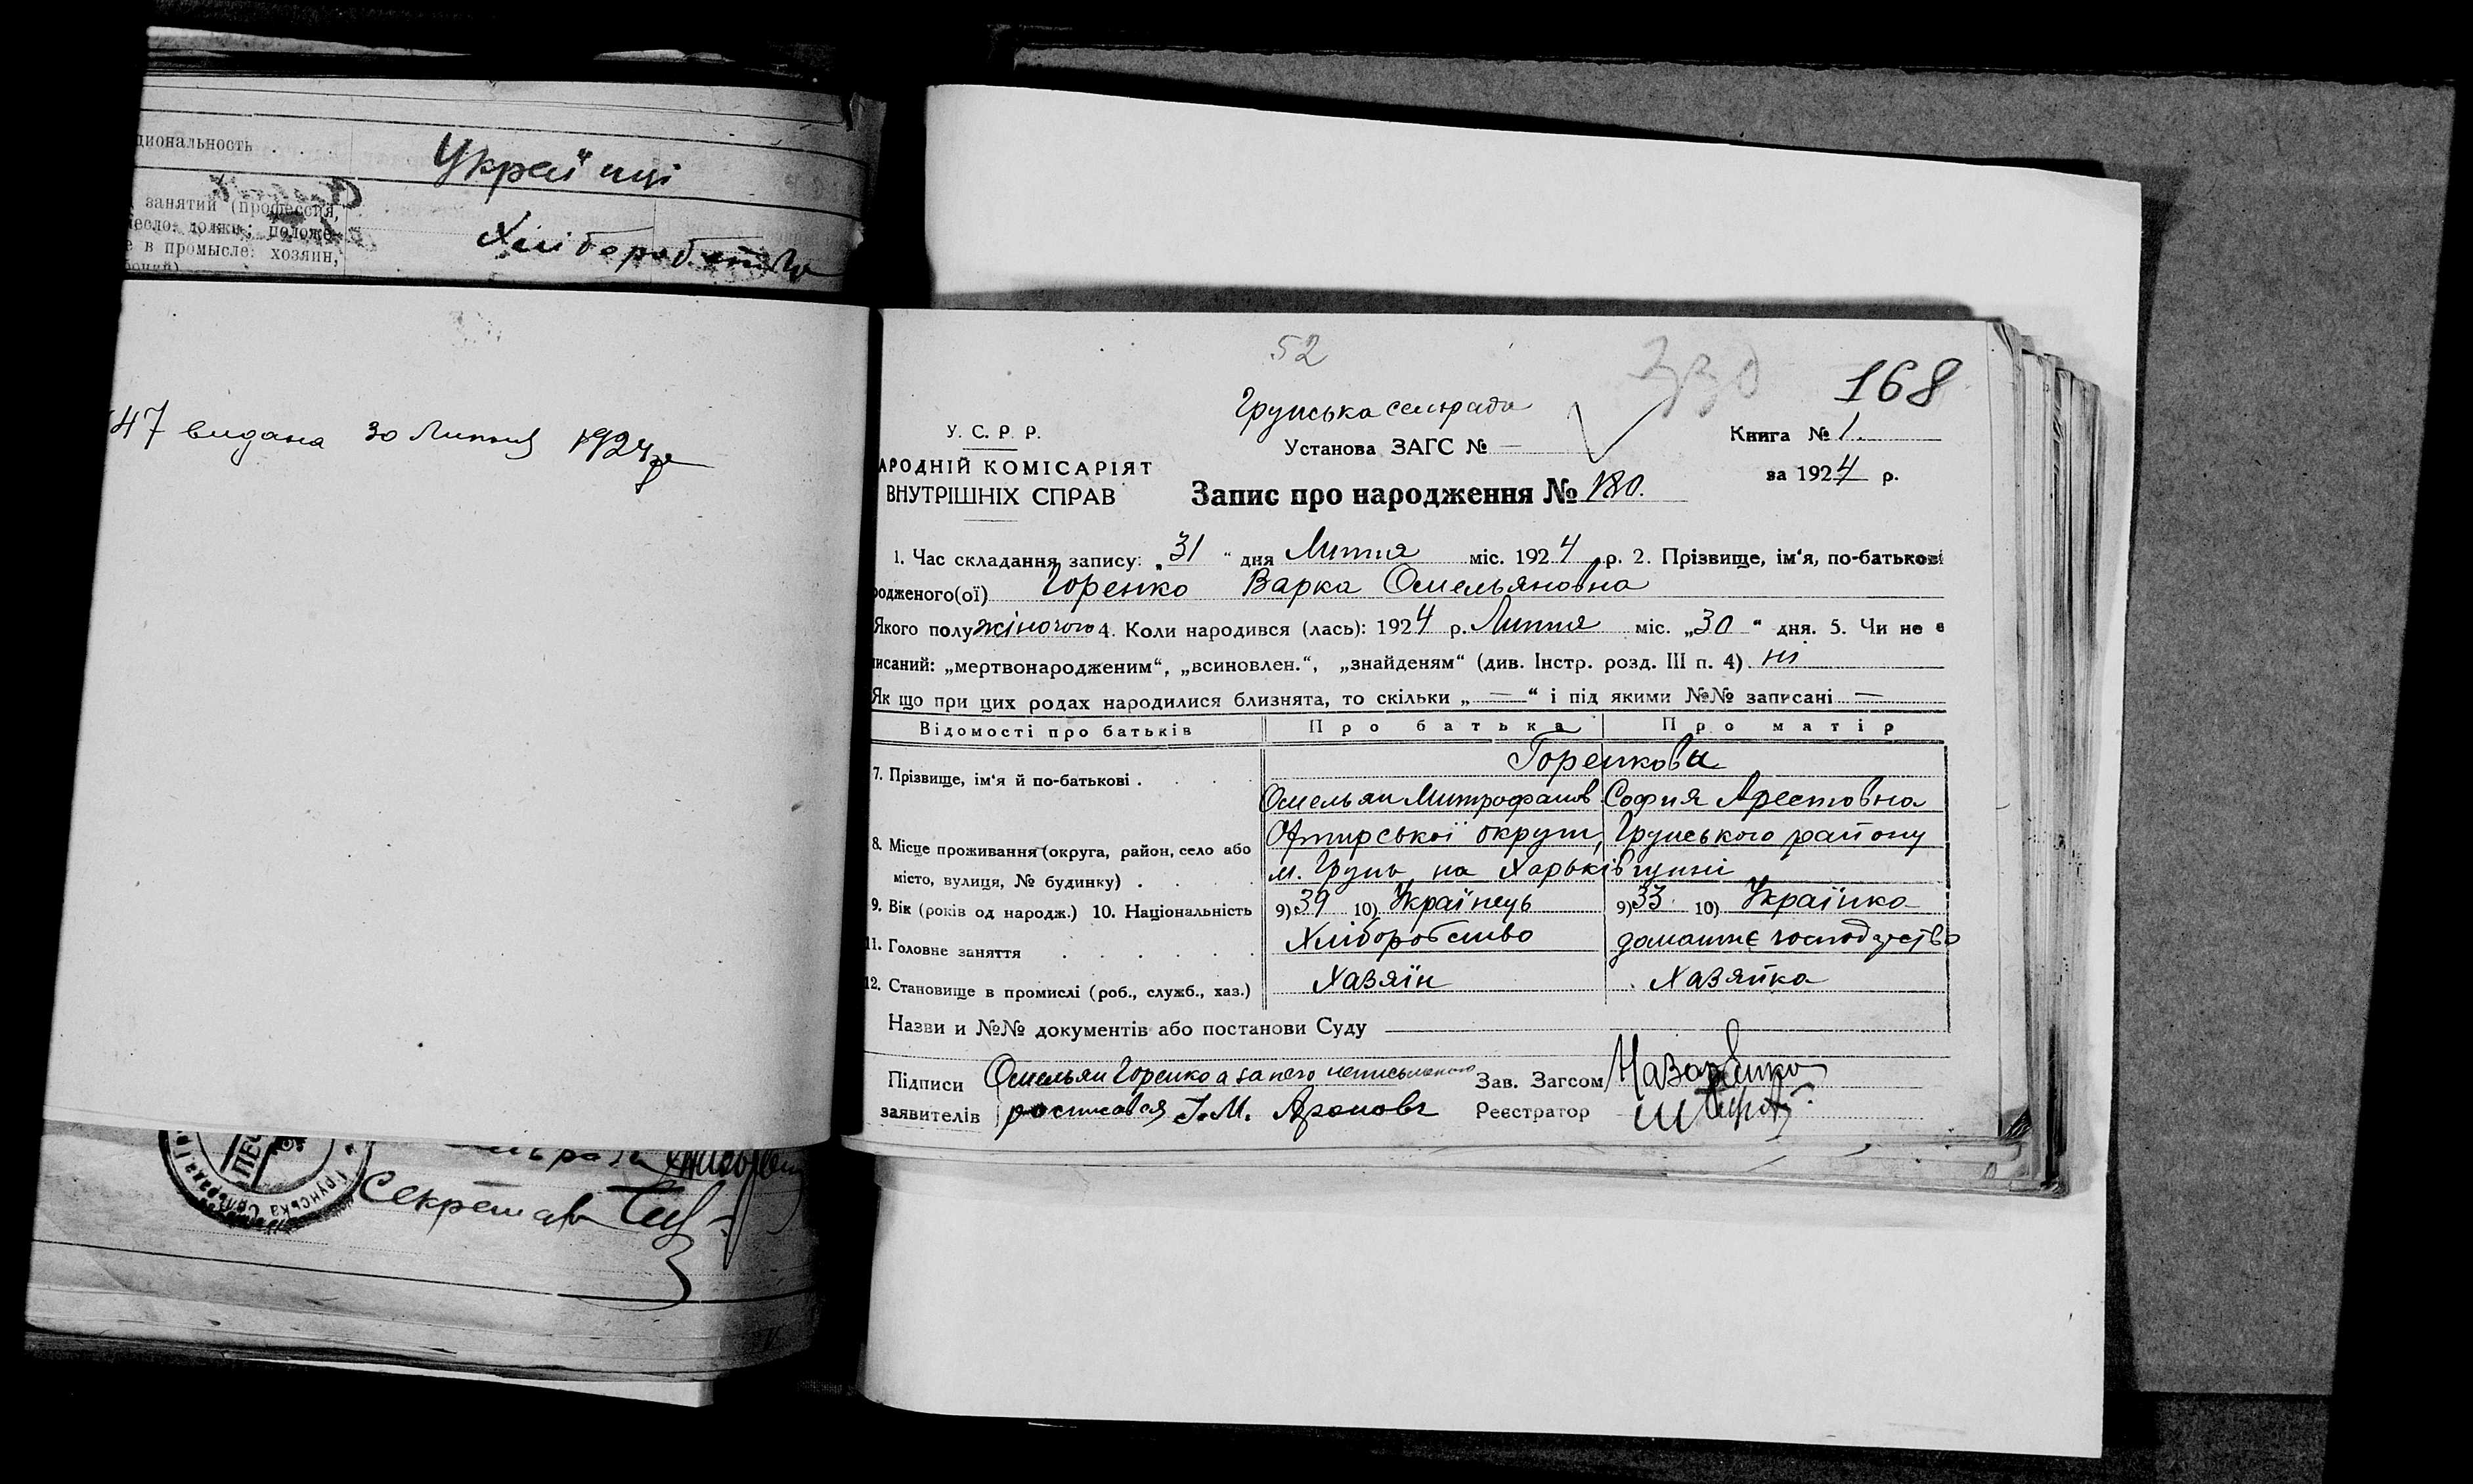 циональность . . .
Украӥнці
занятий (профессия,
есло: должн; положе-
е в промысле: хозяин,
Хліборобство
47 видана 30 Липня 1924 р
Секретар
Грунська
52
330
168
Грунська сельрада
У. С. Р. Р.
Установа ЗАГС № —
Книга № 1.
АРОДНІЙ КОМІСАРІЯТ
за 1924 р.
ВНУТРІШНІХ СПРАВ
Запис про народження № 180.
1. Час складання запису: „31“ дня Липня міс. 1924 р. 2. Прізвище, ім‘я, по-батькові
родженого(ої) Горенко Варка Омельяновна
Якого полу жіночого 4. Коли народився (лась): 1924 р. Липня міс. „30“ дня. 5. Чи не є
писаний: „мертвонародженим“, „всиновлен.“, „знайденям“ (див. Інстр. розд. III п. 4) ні
Як що при цих родах народилися близнята, то скільки „—“ і під якими №№ записані —
Відомості про батьків Про батька Про матір
Горенкови
7. Прізвище, ім‘я й по-батькові .
Омельян Митрофанов София Арестовна
8. Місце проживання (округа, район, село або Охтирської округи, Грунського району
місто, вулиця, № будинку) . м. Грунь на Харьківщині
9. Вік (років од народж.) 10. Національність 9) 39 10) Українець 9) 33 10) Українка
11. Головне заняття Хліборобство домашнє господарство
12. Становище в промислі (роб., служб., хаз.) Хазяїн Хазяйка
Назви и №№ документів або постанови Суду
Підписи Омельян Горенко а за него неписьменого Зав. Загсом Назаренко
заявителів росписався І. М. Реєстратор